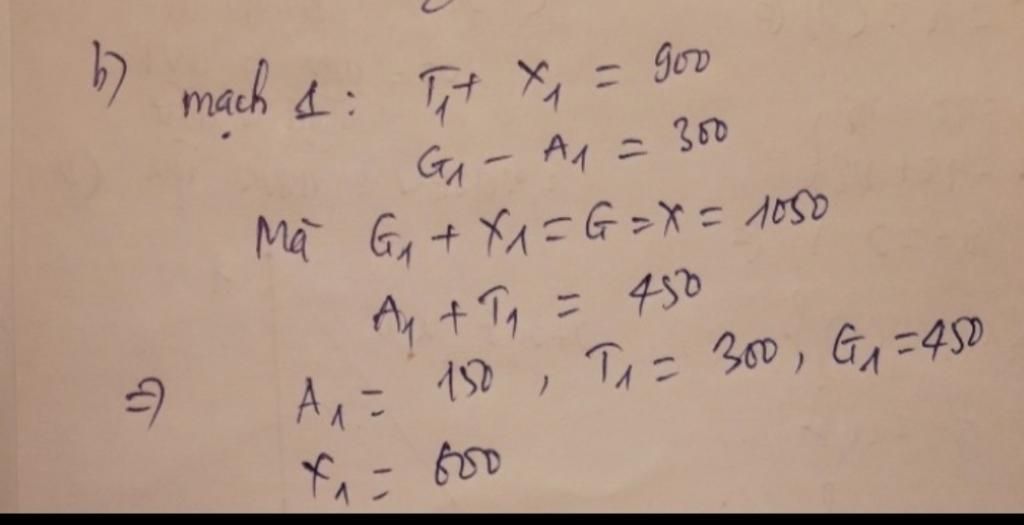 b) mạch 1: T₁ + X₁ = 900
G₁ - A₁ = 300
Mà G₁ + X₁ = G = X = 1050
A₁ + T₁ = 450
=> A₁ = 150, T₁ = 300, G₁ = 450
X₁ = 600